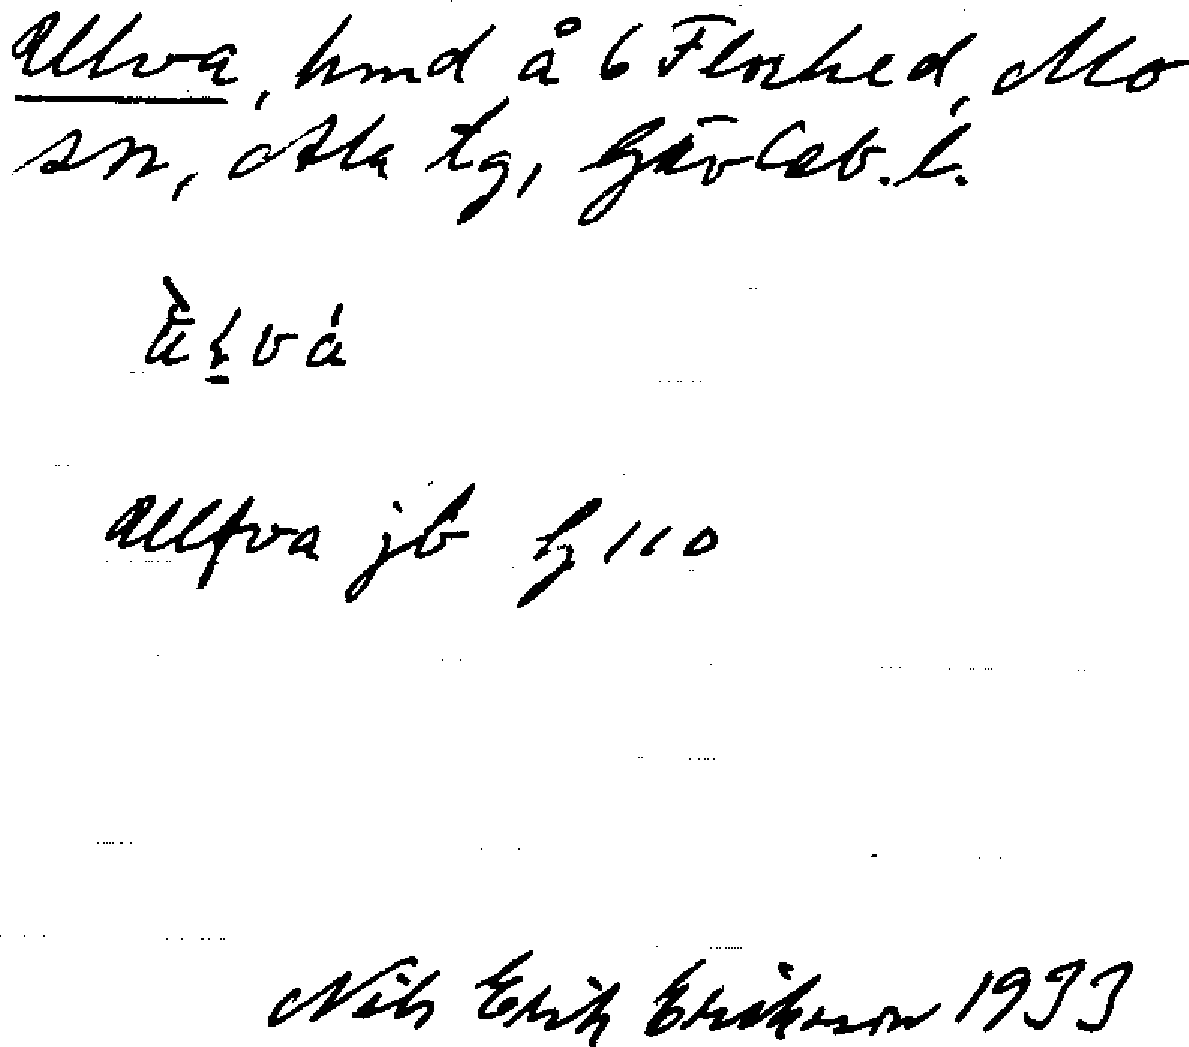 Ulva, hmd å 6 Florhed, Mo
sn, Ala tg, Gävleb. l.
Ullfva jb
Nils Erik Eriksson 1933